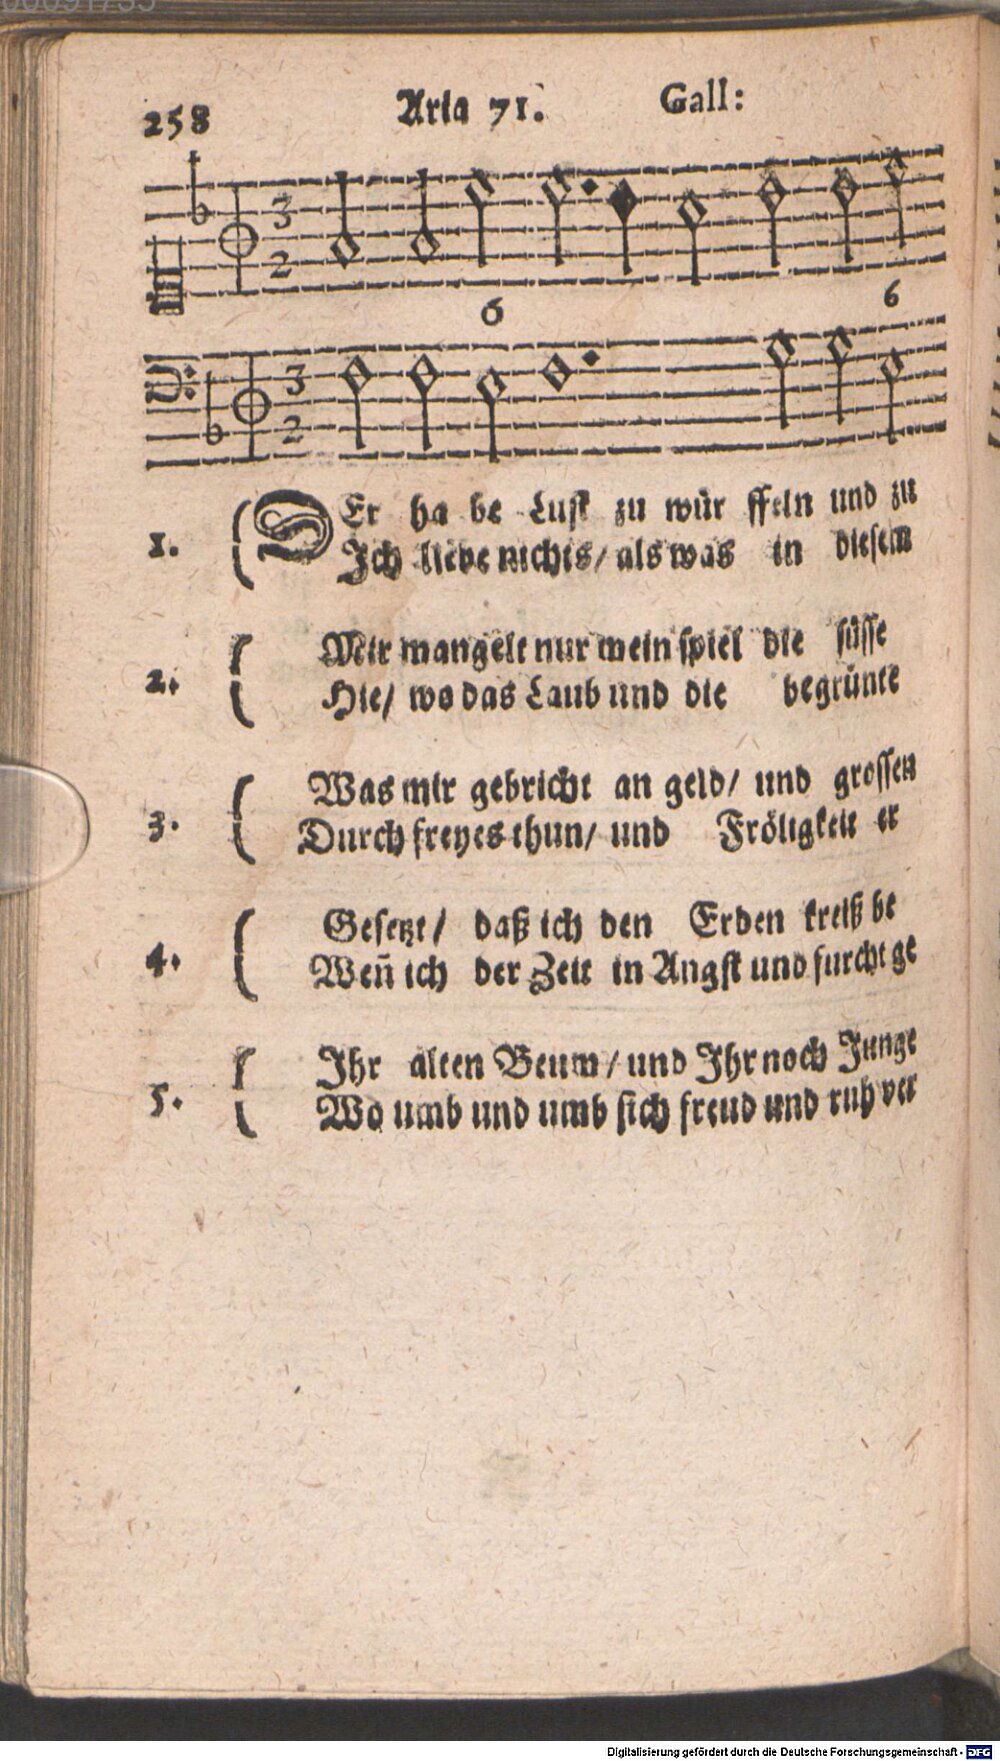 258 Aria 71. Gall:
3
2
6 6
3
2
1. DEr ha be Lust zu wür ffeln und zu
Ich liebe nichts/ als was in diesem
2. Mir mangelt nur mein spiel die süsse
Hie/ wo das Laub und die begrünte
3. Was mir gebricht an geld/ und grossen
Durch freyes thun/ und Fröligkeit er
4. Gesetzt/ daß ich den Erden kreiß be
Weñ ich der Zeit in Angst und furcht ge
5. Ihr alten Beum/ und Ihr noch Junge
Wo umb und umb sich freud und ruh ver
Digitalisierung gefördert durch die Deutsche Forschungsgemeinschaft - DFG